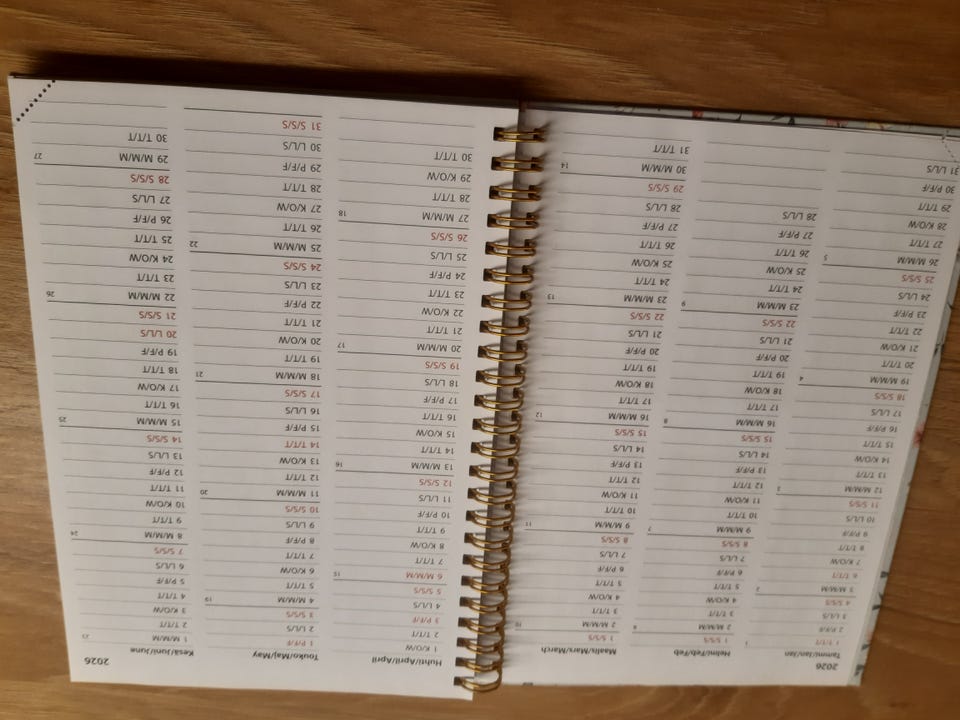 2026
Tammi/Jan/Jan
1 T/T/T 1
2 P/F/F
3 L/L/S
4 S/S/S
5 M/M/M 2
6 T/T/T
7 K/O/W
8 T/T/T
9 P/F/F
10 L/L/S
11 S/S/S
12 M/M/M 3
13 T/T/T
14 K/O/W
15 T/T/T
16 P/F/F
17 L/L/S
18 S/S/S
19 M/M/M 4
20 T/T/T
21 K/O/W
22 T/T/T
23 P/F/F
24 L/L/S
25 S/S/S
26 M/M/M 5
27 T/T/T
28 K/O/W
29 T/T/T
30 P/F/F
31 L/L/S
Helmi/Feb/Feb
1 S/S/S
2 M/M/M 6
3 T/T/T
4 K/O/W
5 T/T/T
6 P/F/F
7 L/L/S
8 S/S/S
9 M/M/M 7
10 T/T/T
11 K/O/W
12 T/T/T
13 P/F/F
14 L/L/S
15 S/S/S
16 M/M/M 8
17 T/T/T
18 K/O/W
19 T/T/T
20 P/F/F
21 L/L/S
22 S/S/S
23 M/M/M 9
24 T/T/T
25 K/O/W
26 T/T/T
27 P/F/F
28 L/L/S
Maalis/Mars/March
1 S/S/S
2 M/M/M 10
3 T/T/T
4 K/O/W
5 T/T/T
6 P/F/F
7 L/L/S
8 S/S/S
9 M/M/M 11
10 T/T/T
11 K/O/W
12 T/T/T
13 P/F/F
14 L/L/S
15 S/S/S
16 M/M/M 12
17 T/T/T
18 K/O/W
19 T/T/T
20 P/F/F
21 L/L/S
22 S/S/S
23 M/M/M 13
24 T/T/T
25 K/O/W
26 T/T/T
27 P/F/F
28 L/L/S
29 S/S/S
30 M/M/M 14
31 T/T/T
Huhti/April/April
1 K/O/W
2 T/T/T
3 P/F/F
4 L/L/S
5 S/S/S
6 M/M/M 15
7 T/T/T
8 K/O/W
9 T/T/T
10 P/F/F
11 L/L/S
12 S/S/S
13 M/M/M 16
14 T/T/T
15 K/O/W
16 T/T/T
17 P/F/F
18 L/L/S
19 S/S/S
20 M/M/M 17
21 T/T/T
22 K/O/W
23 T/T/T
24 P/F/F
25 L/L/S
26 S/S/S
27 M/M/M 18
28 T/T/T
29 K/O/W
30 T/T/T
Touko/Maj/May
1 P/F/F
2 L/L/S
3 S/S/S
4 M/M/M 19
5 T/T/T
6 K/O/W
7 T/T/T
8 P/F/F
9 L/L/S
10 S/S/S
11 M/M/M 20
12 T/T/T
13 K/O/W
14 T/T/T
15 P/F/F
16 L/L/S
17 S/S/S
18 M/M/M 21
19 T/T/T
20 K/O/W
21 T/T/T
22 P/F/F
23 L/L/S
24 S/S/S
25 M/M/M 22
26 T/T/T
27 K/O/W
28 T/T/T
29 P/F/F
30 L/L/S
31 S/S/S
Kesä/Juni/June
2026
1 M/M/M 23
2 T/T/T
3 K/O/W
4 T/T/T
5 P/F/F
6 L/L/S
7 S/S/S
8 M/M/M 24
9 T/T/T
10 K/O/W
11 T/T/T
12 P/F/F
13 L/L/S
14 S/S/S
15 M/M/M 25
16 T/T/T
17 K/O/W
18 T/T/T
19 P/F/F
20 L/L/S
21 S/S/S
22 M/M/M 26
23 T/T/T
24 K/O/W
25 T/T/T
26 P/F/F
27 L/L/S
28 S/S/S
29 M/M/M 27
30 T/T/T